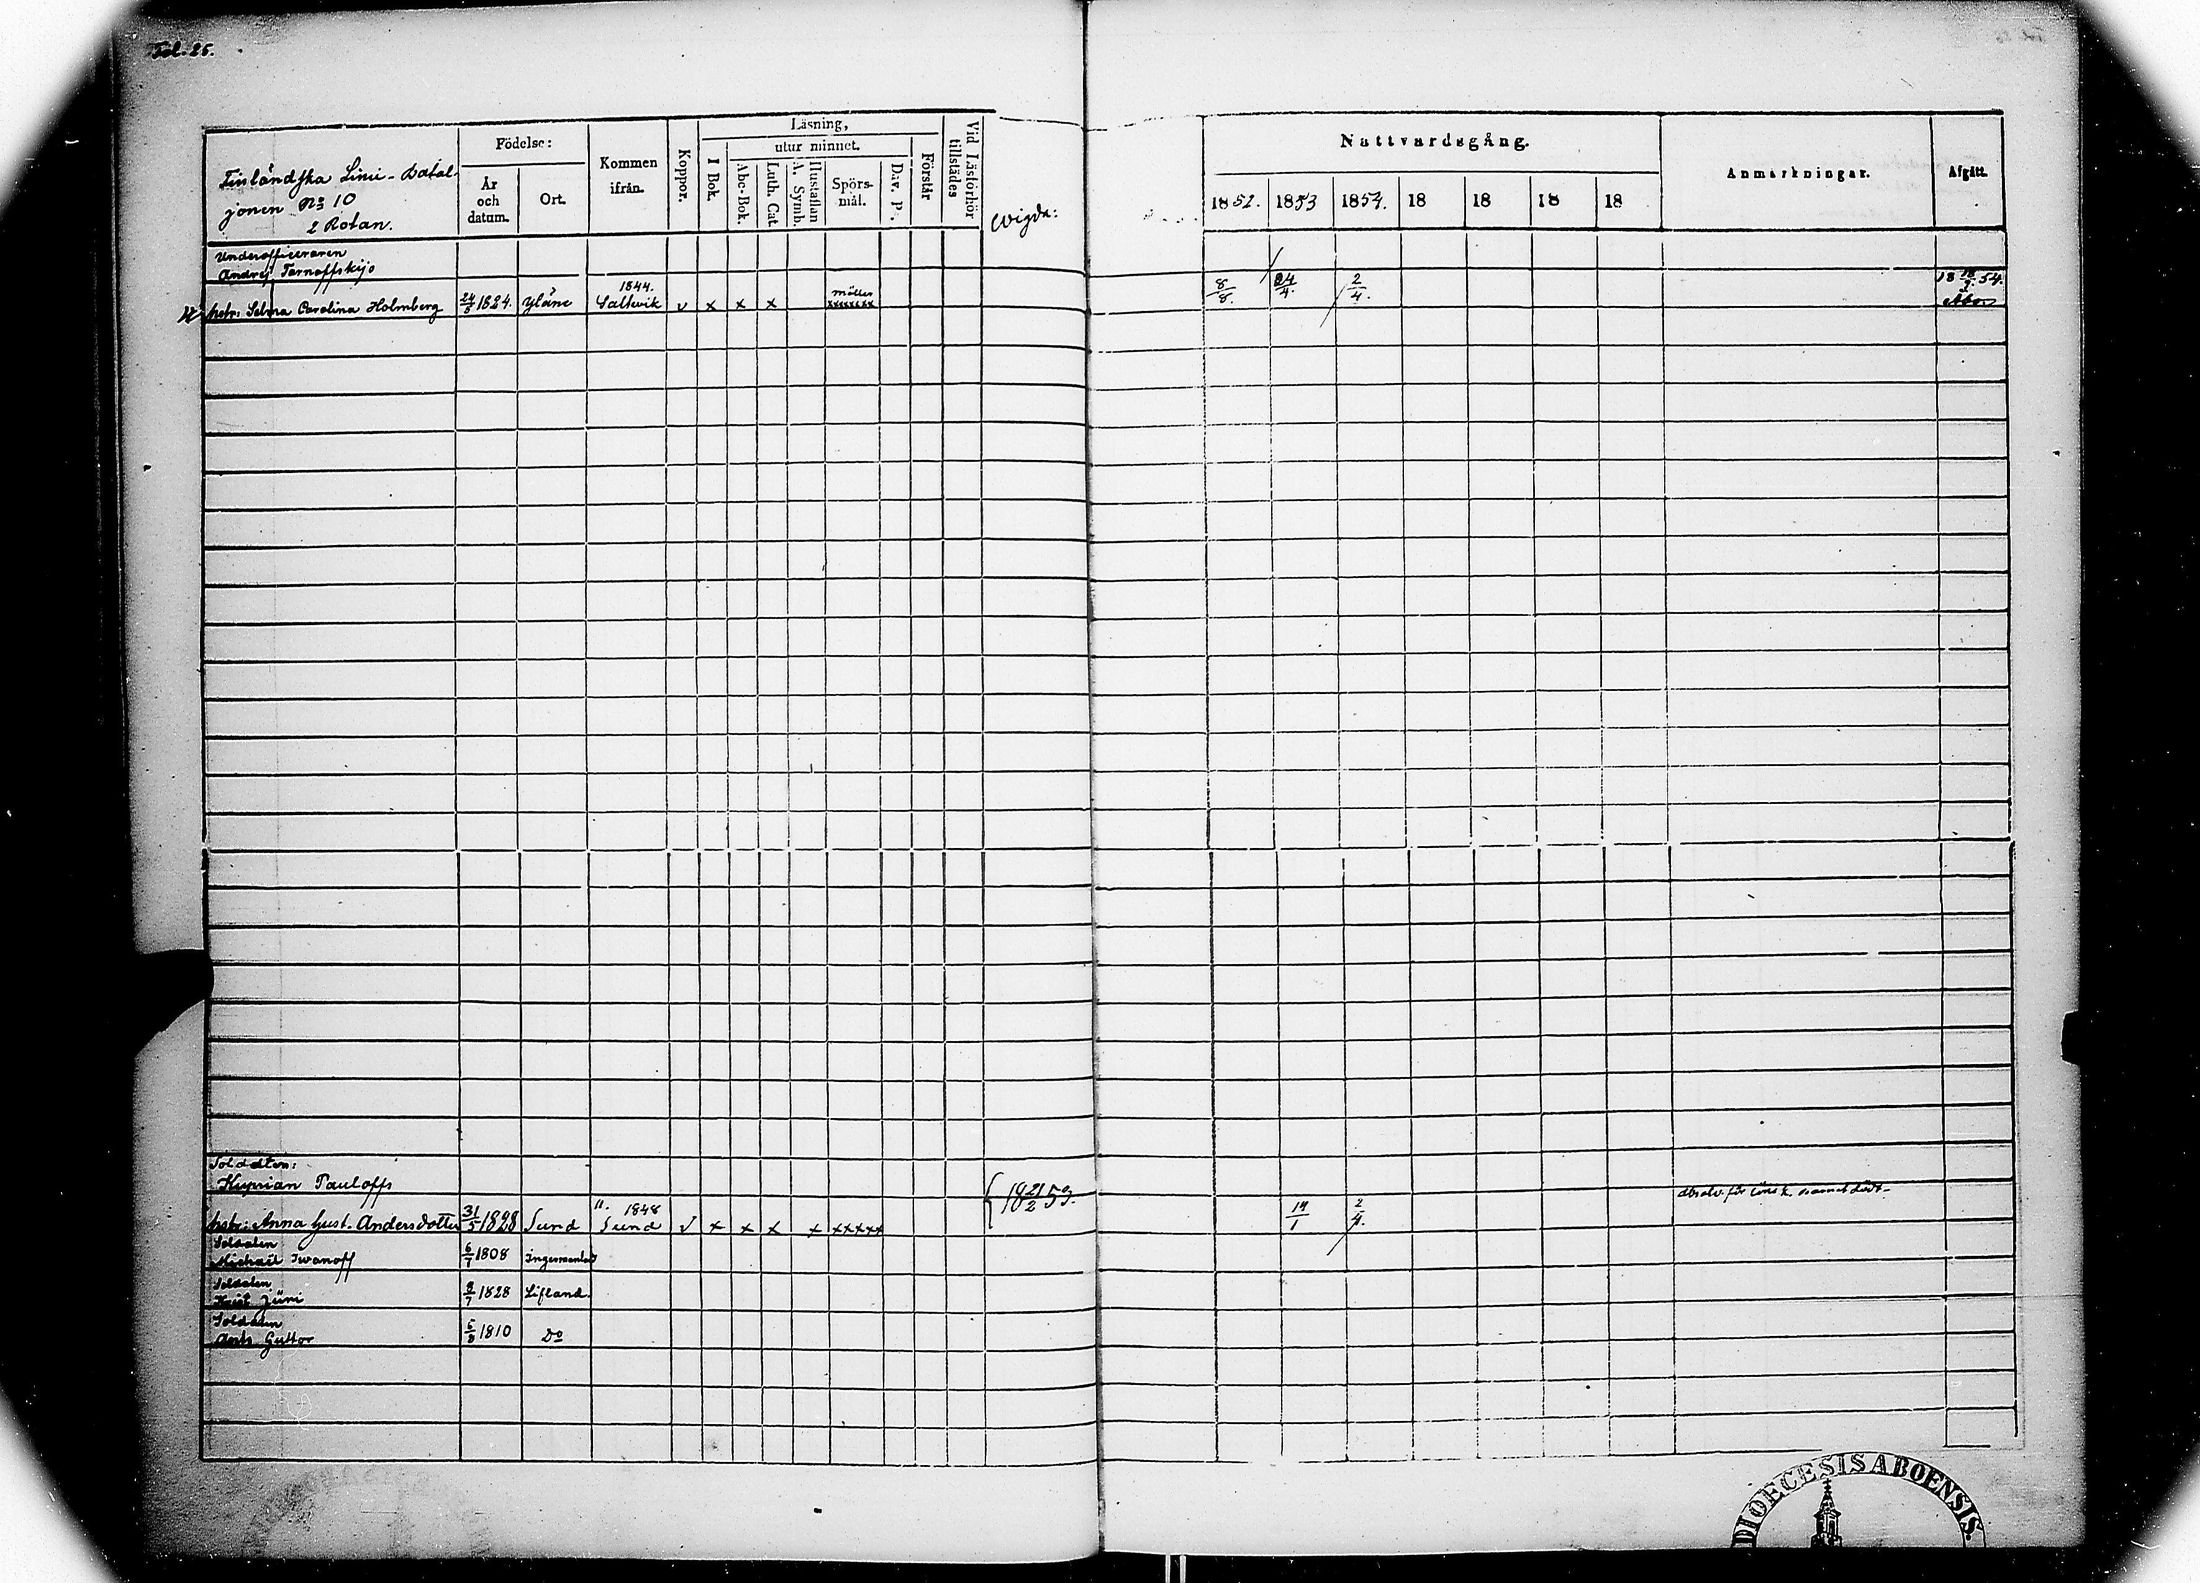 Fol. 25.
Finländska Linie-Batal-
jonen No 10
2 Rotan.
Födelse:
År
och
datum.
Ort.
Kommen
ifrån.
Koppor.
Läsning,
utur minnet.
I Bok.
Abc-Bok.
Luth. Cat.
Hustaflan
A. Symb.
Spörs-
mål.
Div. P.
Förstår
Vid Läsförhör
tillstädes
wigda:
Nattvardsgång.
1852. 1853 1854. 18 18 18 18
Anmärkningar.
Afgått.
Underofficeraren
Andrej Tarnoffskijs
hstr: Selma Carolina Holmberg 24/5 1824. Yläne 1844. Saltvik v x x x xxxxxxx 8/8. 24/4. 2/4. 18 54.
Soldaten:
Kyprian Pauloffs
hstr: Anna Gust. Andersdotter 31/5 1828 Sund 1848 Sund v x x x x xxxxx 18 21/2 53. 19/1 2/4.
Soldaten
Michail Iwanoff 6/7 1808 Ingermanland
Soldaten
Jüri 1828 Lifland.
Soldaten
Ants Guttor 1810 Do
DIOECESIS ABOENSIS.